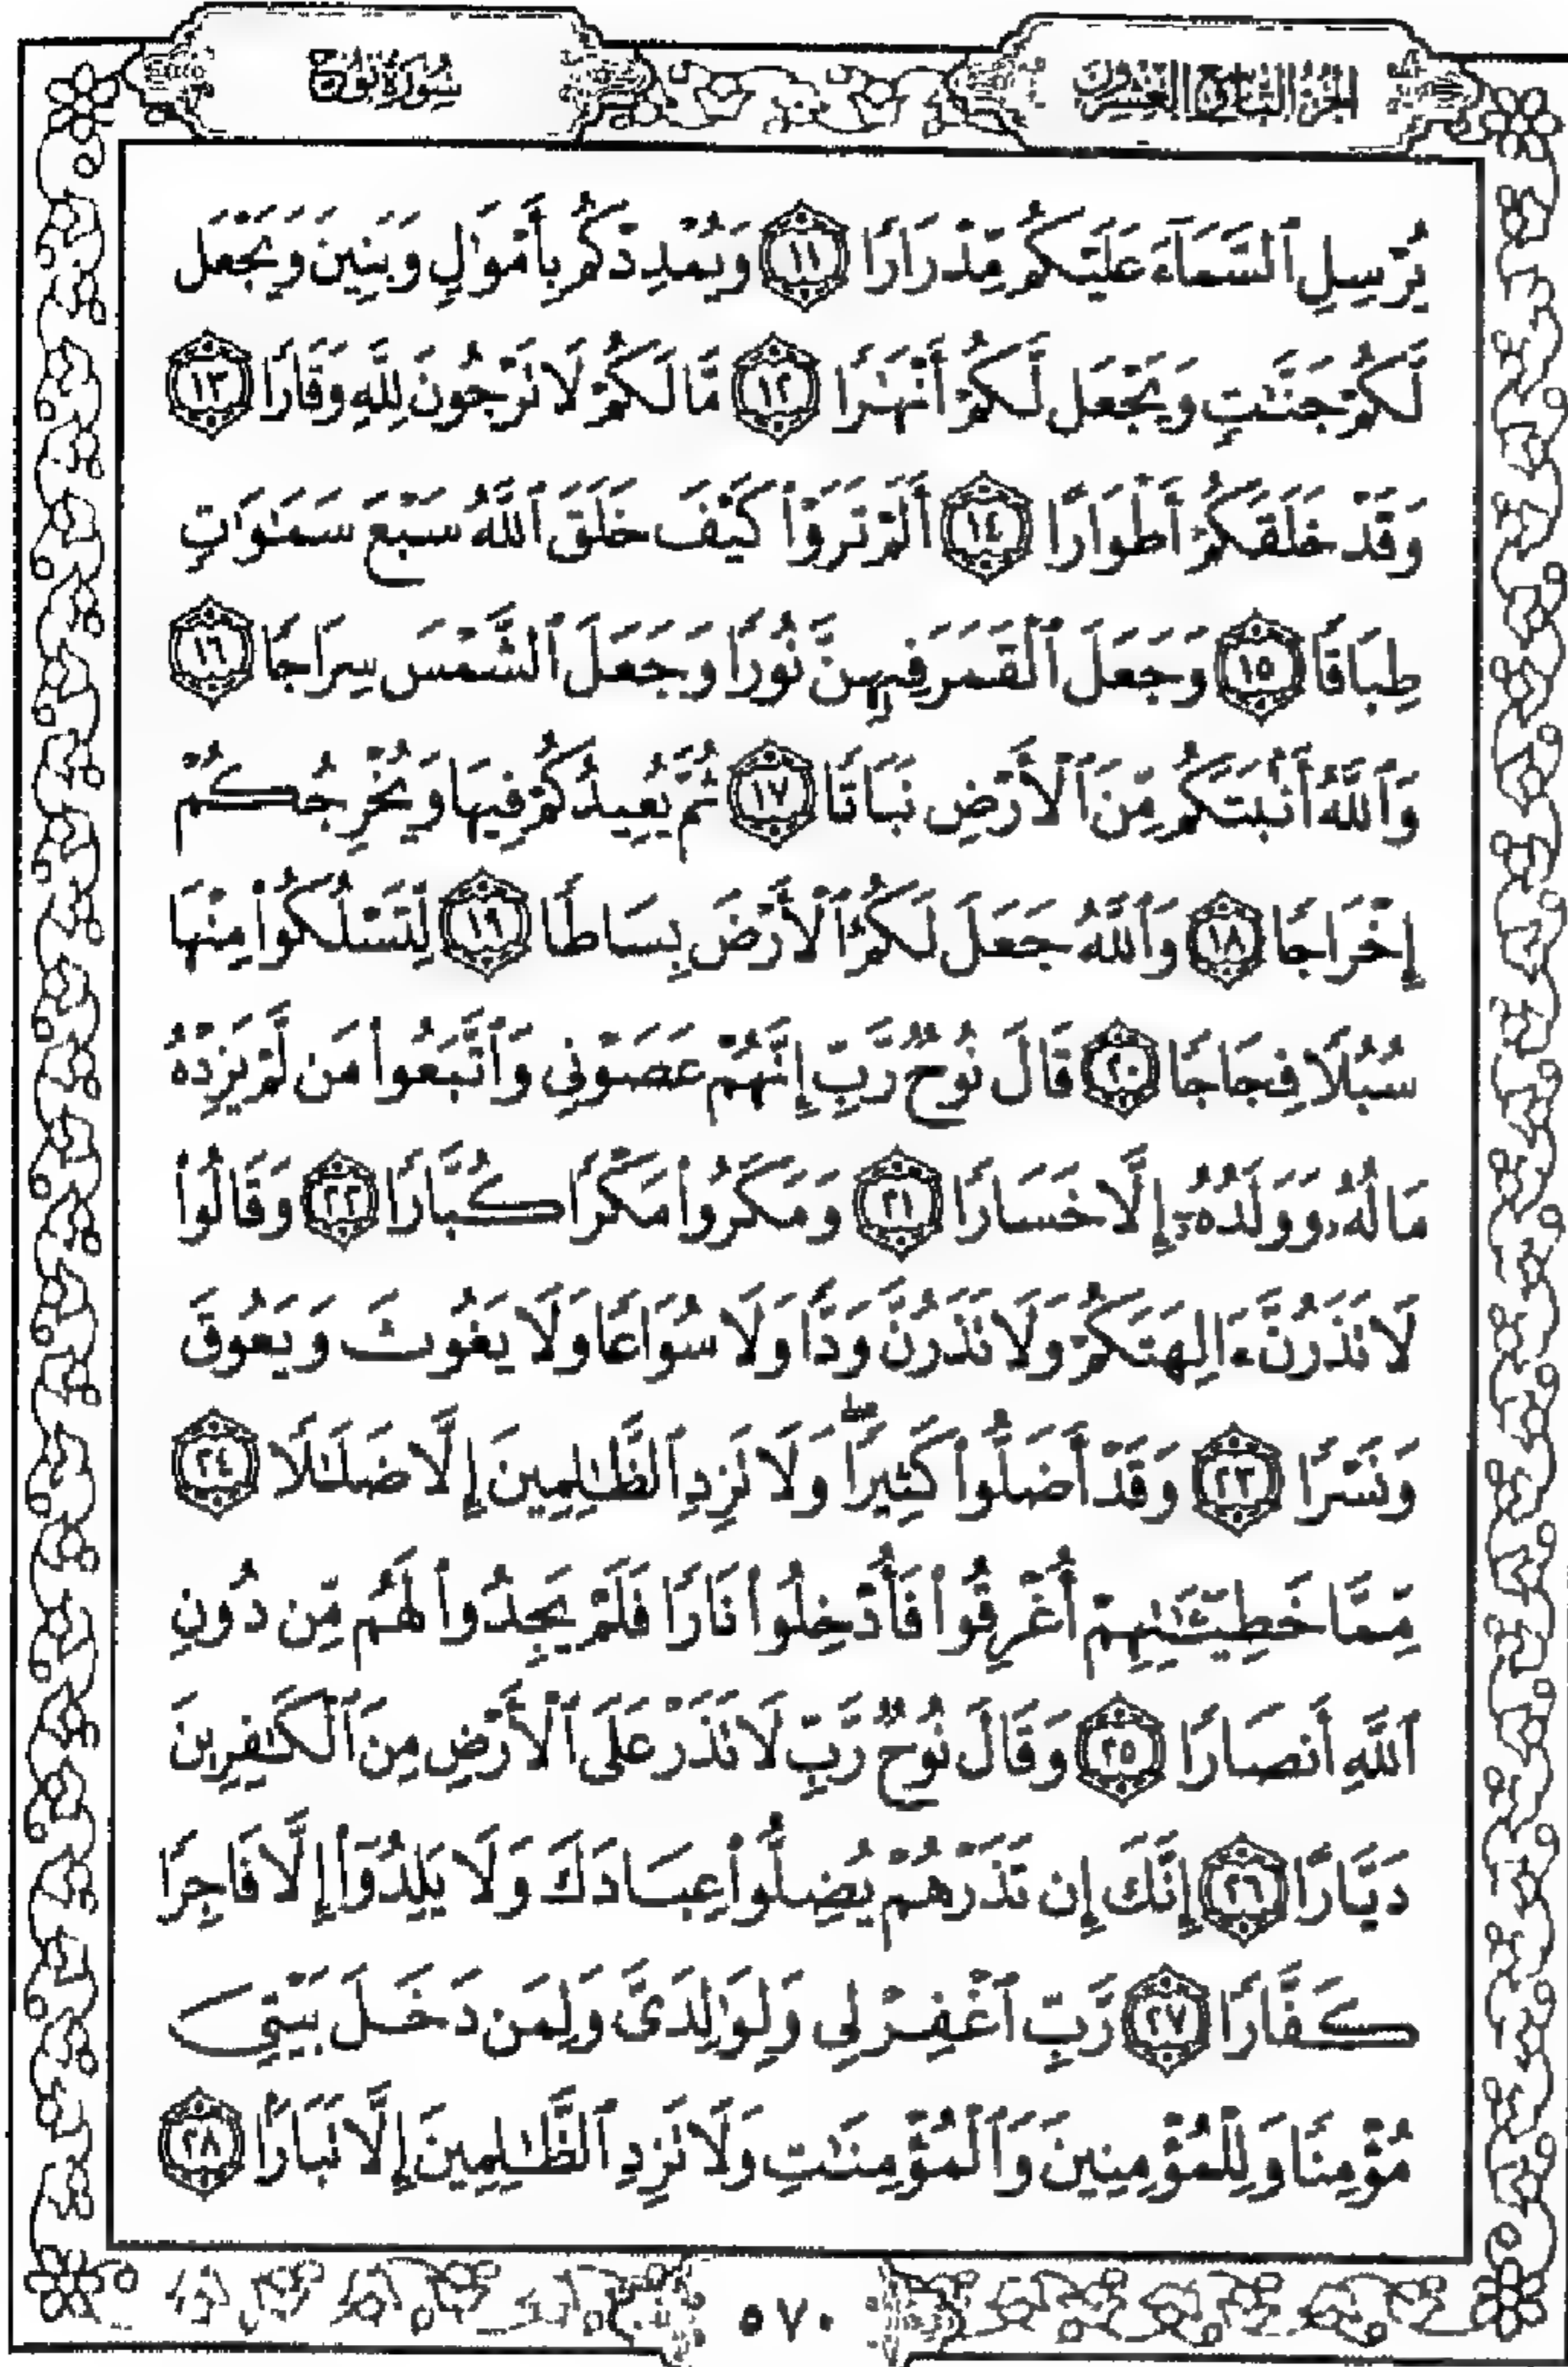 الجزء التاسع والعشرون
سورة نوح
يُرْسِلِ ٱلسَّمَآءَ عَلَيْكُم مِّدْرَارًا ١١ وَيُمْدِدْكُم بِأَمْوَٰلٍ وَبَنِينَ وَيَجْعَل
لَّكُمْ جَنَّٰتٍ وَيَجْعَل لَّكُمْ أَنْهَٰرًا ١٢ مَّا لَكُمْ لَا تَرْجُونَ لِلَّهِ وَقَارًا ١٣
وَقَدْ خَلَقَكُمْ أَطْوَارًا ١٤ أَلَمْ تَرَوْا۟ كَيْفَ خَلَقَ ٱللَّهُ سَبْعَ سَمَٰوَٰتٍ
طِبَاقًا ١٥ وَجَعَلَ ٱلْقَمَرَ فِيهِنَّ نُورًا وَجَعَلَ ٱلشَّمْسَ سِرَاجًا ١٦
وَٱللَّهُ أَنۢبَتَكُم مِّنَ ٱلْأَرْضِ نَبَاتًا ١٧ ثُمَّ يُعِيدُكُمْ فِيهَا وَيُخْرِجُكُمْ
إِخْرَاجًا ١٨ وَٱللَّهُ جَعَلَ لَكُمُ ٱلْأَرْضَ بِسَاطًا ١٩ لِّتَسْلُكُوا۟ مِنْهَا
سُبُلًا فِجَاجًا ٢٠ قَالَ نُوحٌ رَّبِّ إِنَّهُمْ عَصَوْنِى وَٱتَّبَعُوا۟ مَن لَّمْ يَزِدْهُ
مَالُهُۥ وَوَلَدُهُۥٓ إِلَّا خَسَارًا ٢١ وَمَكَرُوا۟ مَكْرًا كُبَّارًا ٢٢ وَقَالُوا۟
لَا تَذَرُنَّ ءَالِهَتَكُمْ وَلَا تَذَرُنَّ وَدًّا وَلَا سُوَاعًا وَلَا يَغُوثَ وَيَعُوقَ
وَنَسْرًا ٢٣ وَقَدْ أَضَلُّوا۟ كَثِيرًا ۖ وَلَا تَزِدِ ٱلظَّٰلِمِينَ إِلَّا ضَلَٰلًا ٢٤
مِّمَّا خَطِيٓـَٰٔتِهِمْ أُغْرِقُوا۟ فَأُدْخِلُوا۟ نَارًا فَلَمْ يَجِدُوا۟ لَهُم مِّن دُونِ
ٱللَّهِ أَنصَارًا ٢٥ وَقَالَ نُوحٌ رَّبِّ لَا تَذَرْ عَلَى ٱلْأَرْضِ مِنَ ٱلْكَٰفِرِينَ
دَيَّارًا ٢٦ إِنَّكَ إِن تَذَرْهُمْ يُضِلُّوا۟ عِبَادَكَ وَلَا يَلِدُوٓا۟ إِلَّا فَاجِرًا
كَفَّارًا ٢٧ رَّبِّ ٱغْفِرْ لِى وَلِوَٰلِدَىَّ وَلِمَن دَخَلَ بَيْتِىَ
مُؤْمِنًا وَلِلْمُؤْمِنِينَ وَٱلْمُؤْمِنَٰتِ وَلَا تَزِدِ ٱلظَّٰلِمِينَ إِلَّا تَبَارًۢا ٢٨
٥٧٠